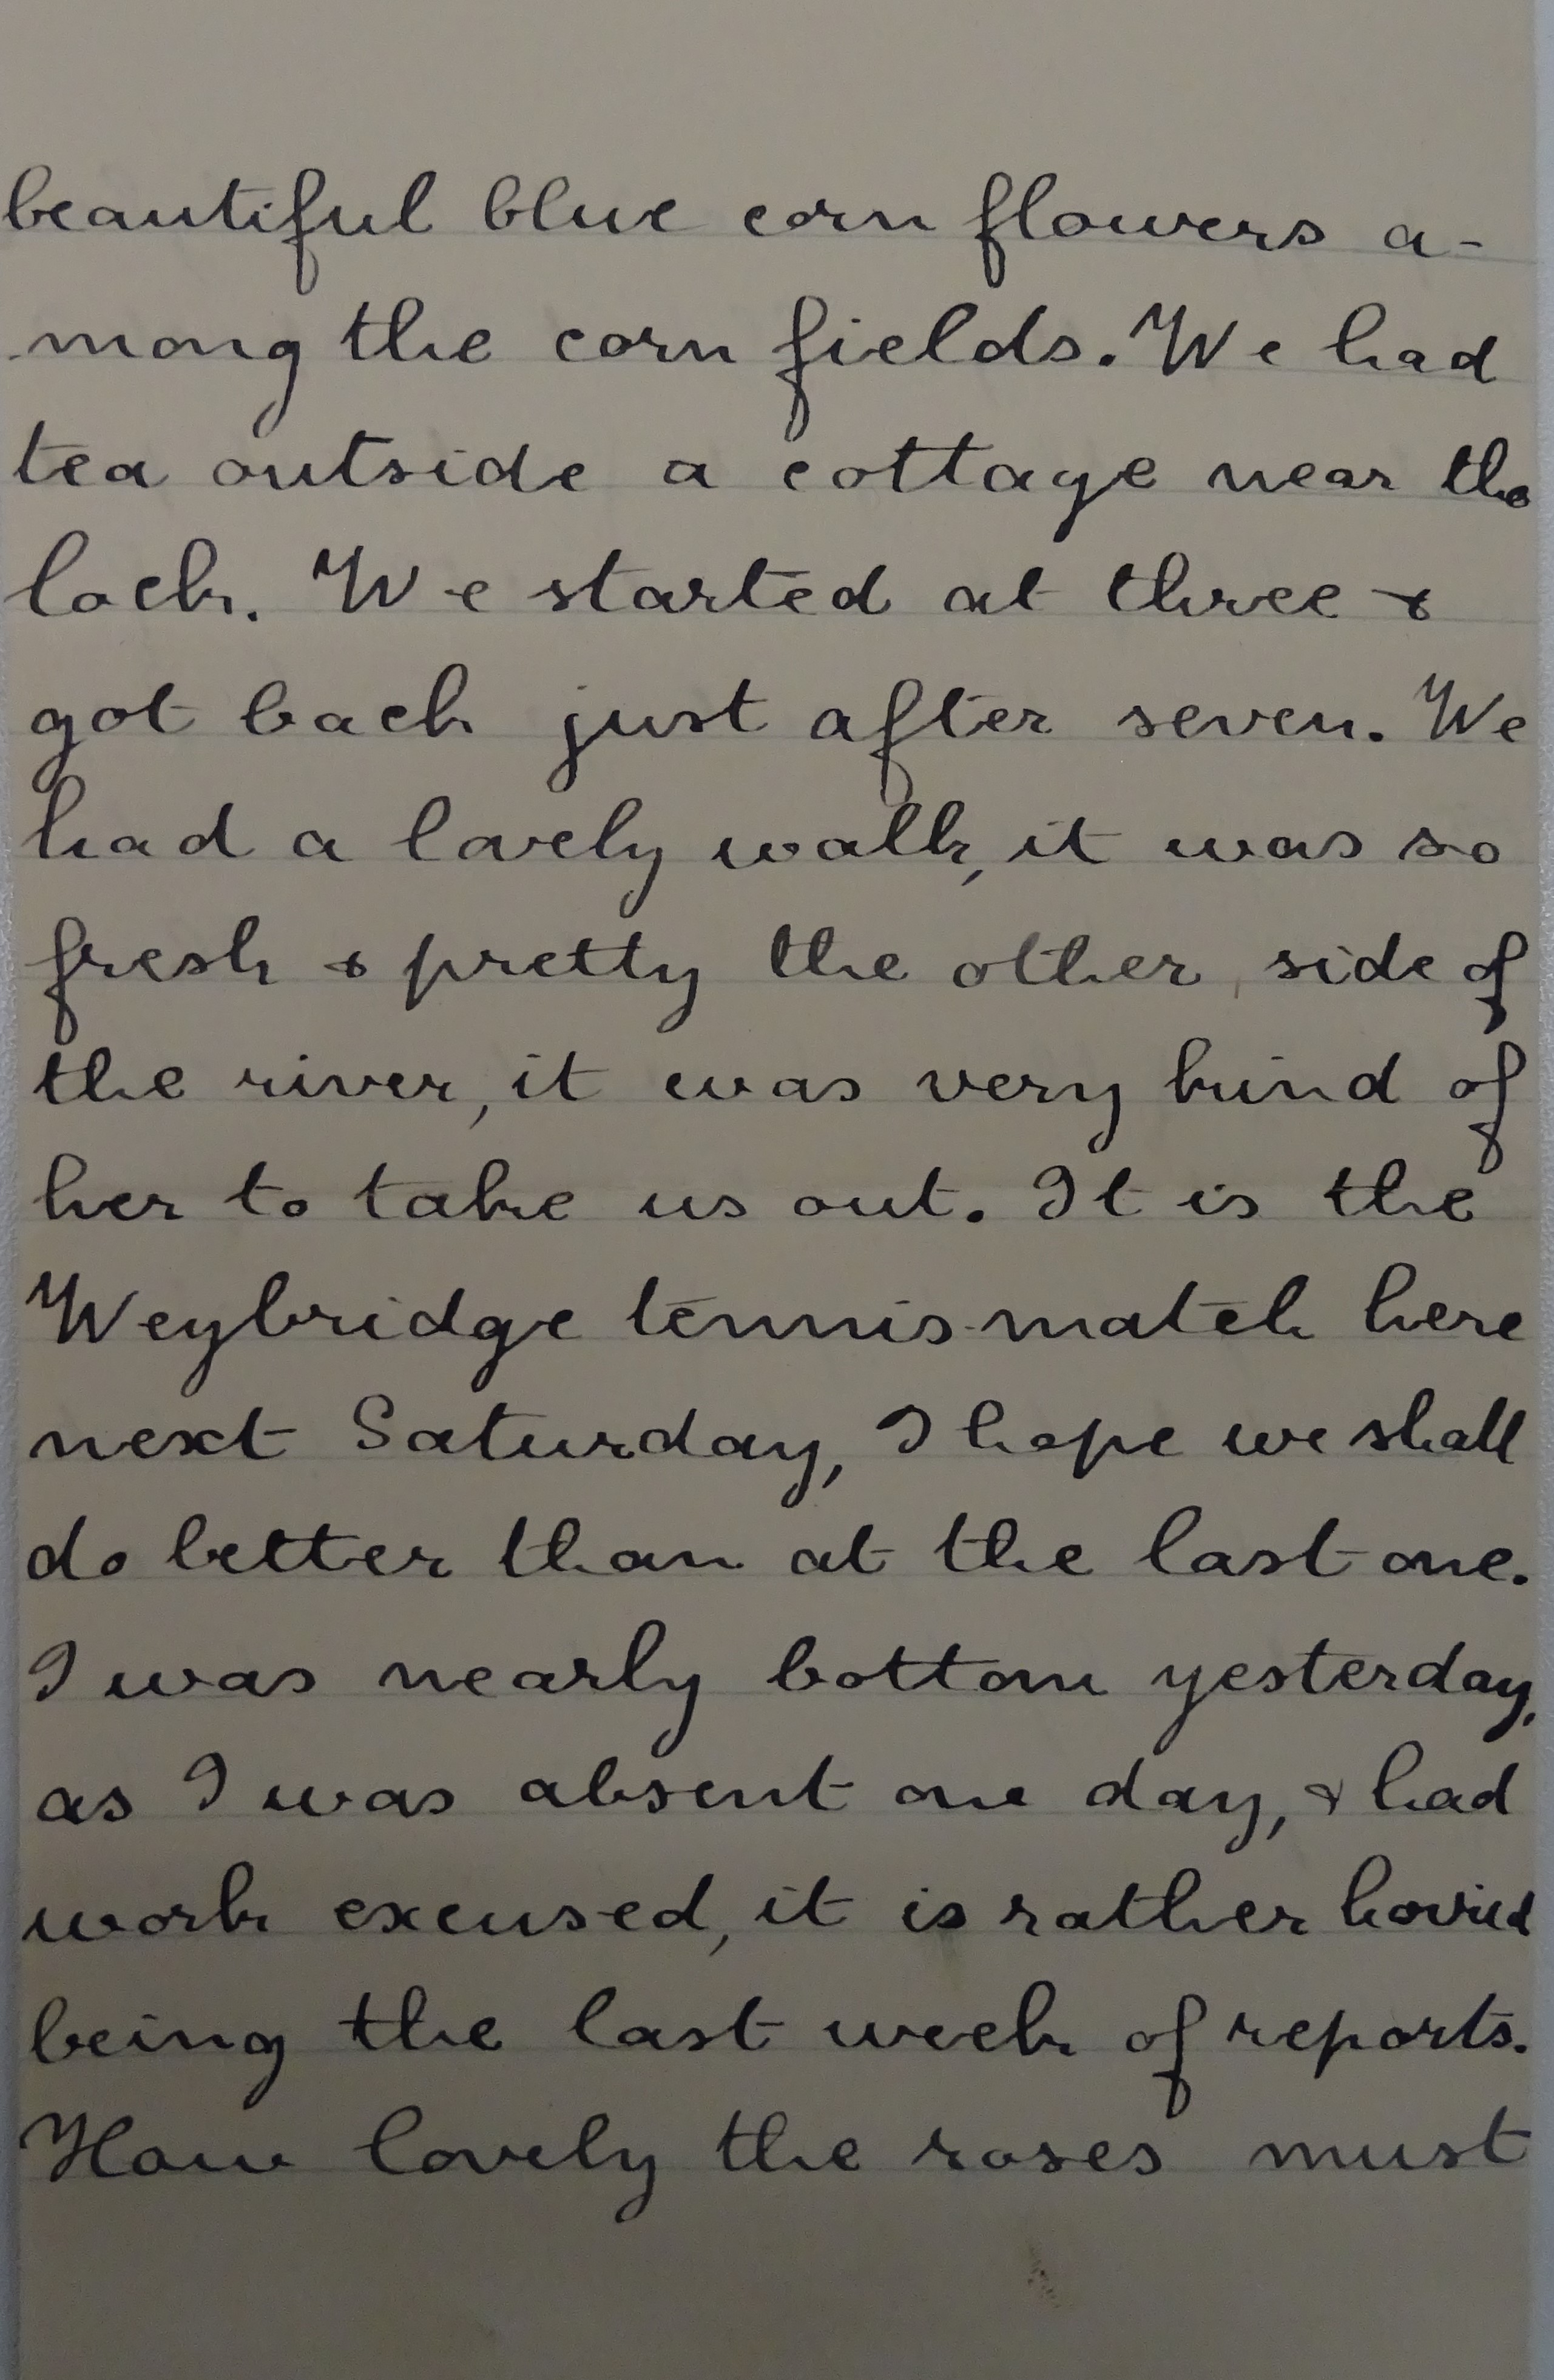 beautiful blue corn flowers a-
mong the corn fields. We had
tea outside a cottage near the
lock. We started at three &
got back just after seven. We
had a lovely walk, it was so
fresh & pretty the other side of
the river, it was very kind of
her to take us out. It is the
Weybridge tennis-match here
next Saturday, I hope we shall
do better than at the last one.
I was nearly bottom yesterday,
as I was absent one day, & had
work excused, it is rather horrid
being the last week of reports.
How lovely the roses must